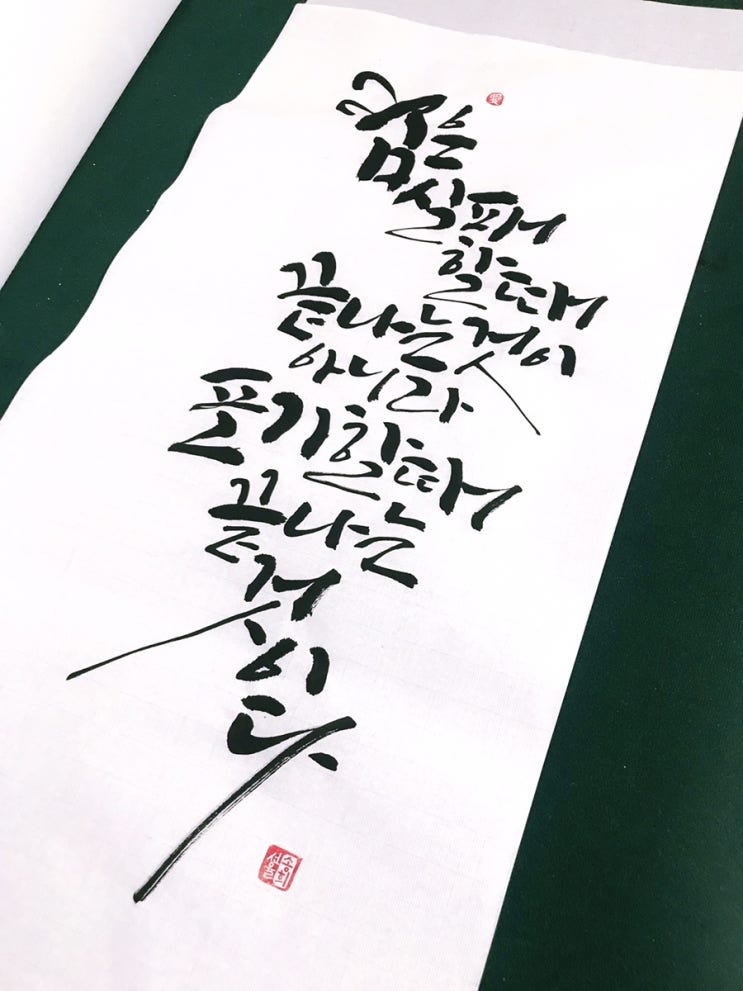 꿈은
실패
할때
끝나는것이
아니라
포기할때
끝나는
것
이
다